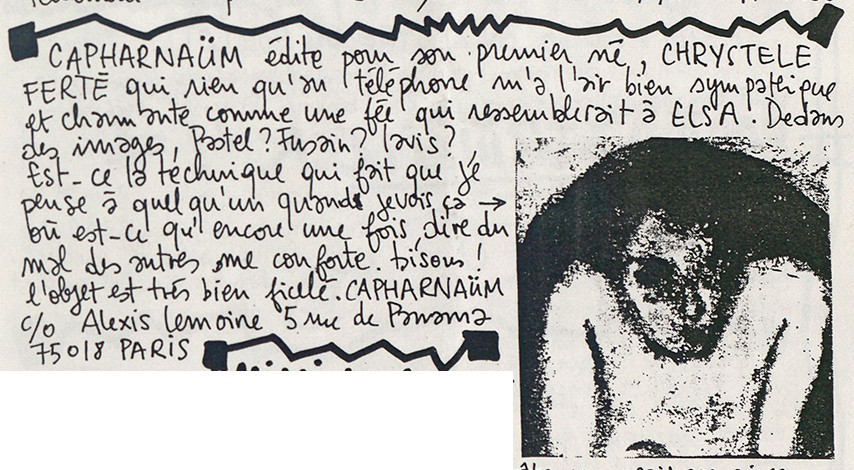 CAPHARNAÜM édite pour son premier né, CHRYSTELE
FERTÉ qui rien qu'au téléphone m'a l'air bien sympathique
et charmante comme une fée qui ressemblerait à ELSA. Dedans
des images, Pastel? Fusain? lavis?
Est-ce la technique qui fait que je
pense à quelqu'un quand je vois ça →
où est-ce qu'encore une fois, dire du
mal des autres me conforte. bisous!
l'objet est très bien ficelé. CAPHARNAÜM
c/o Alexis Lemoine 5 rue de Panama
75018 PARIS